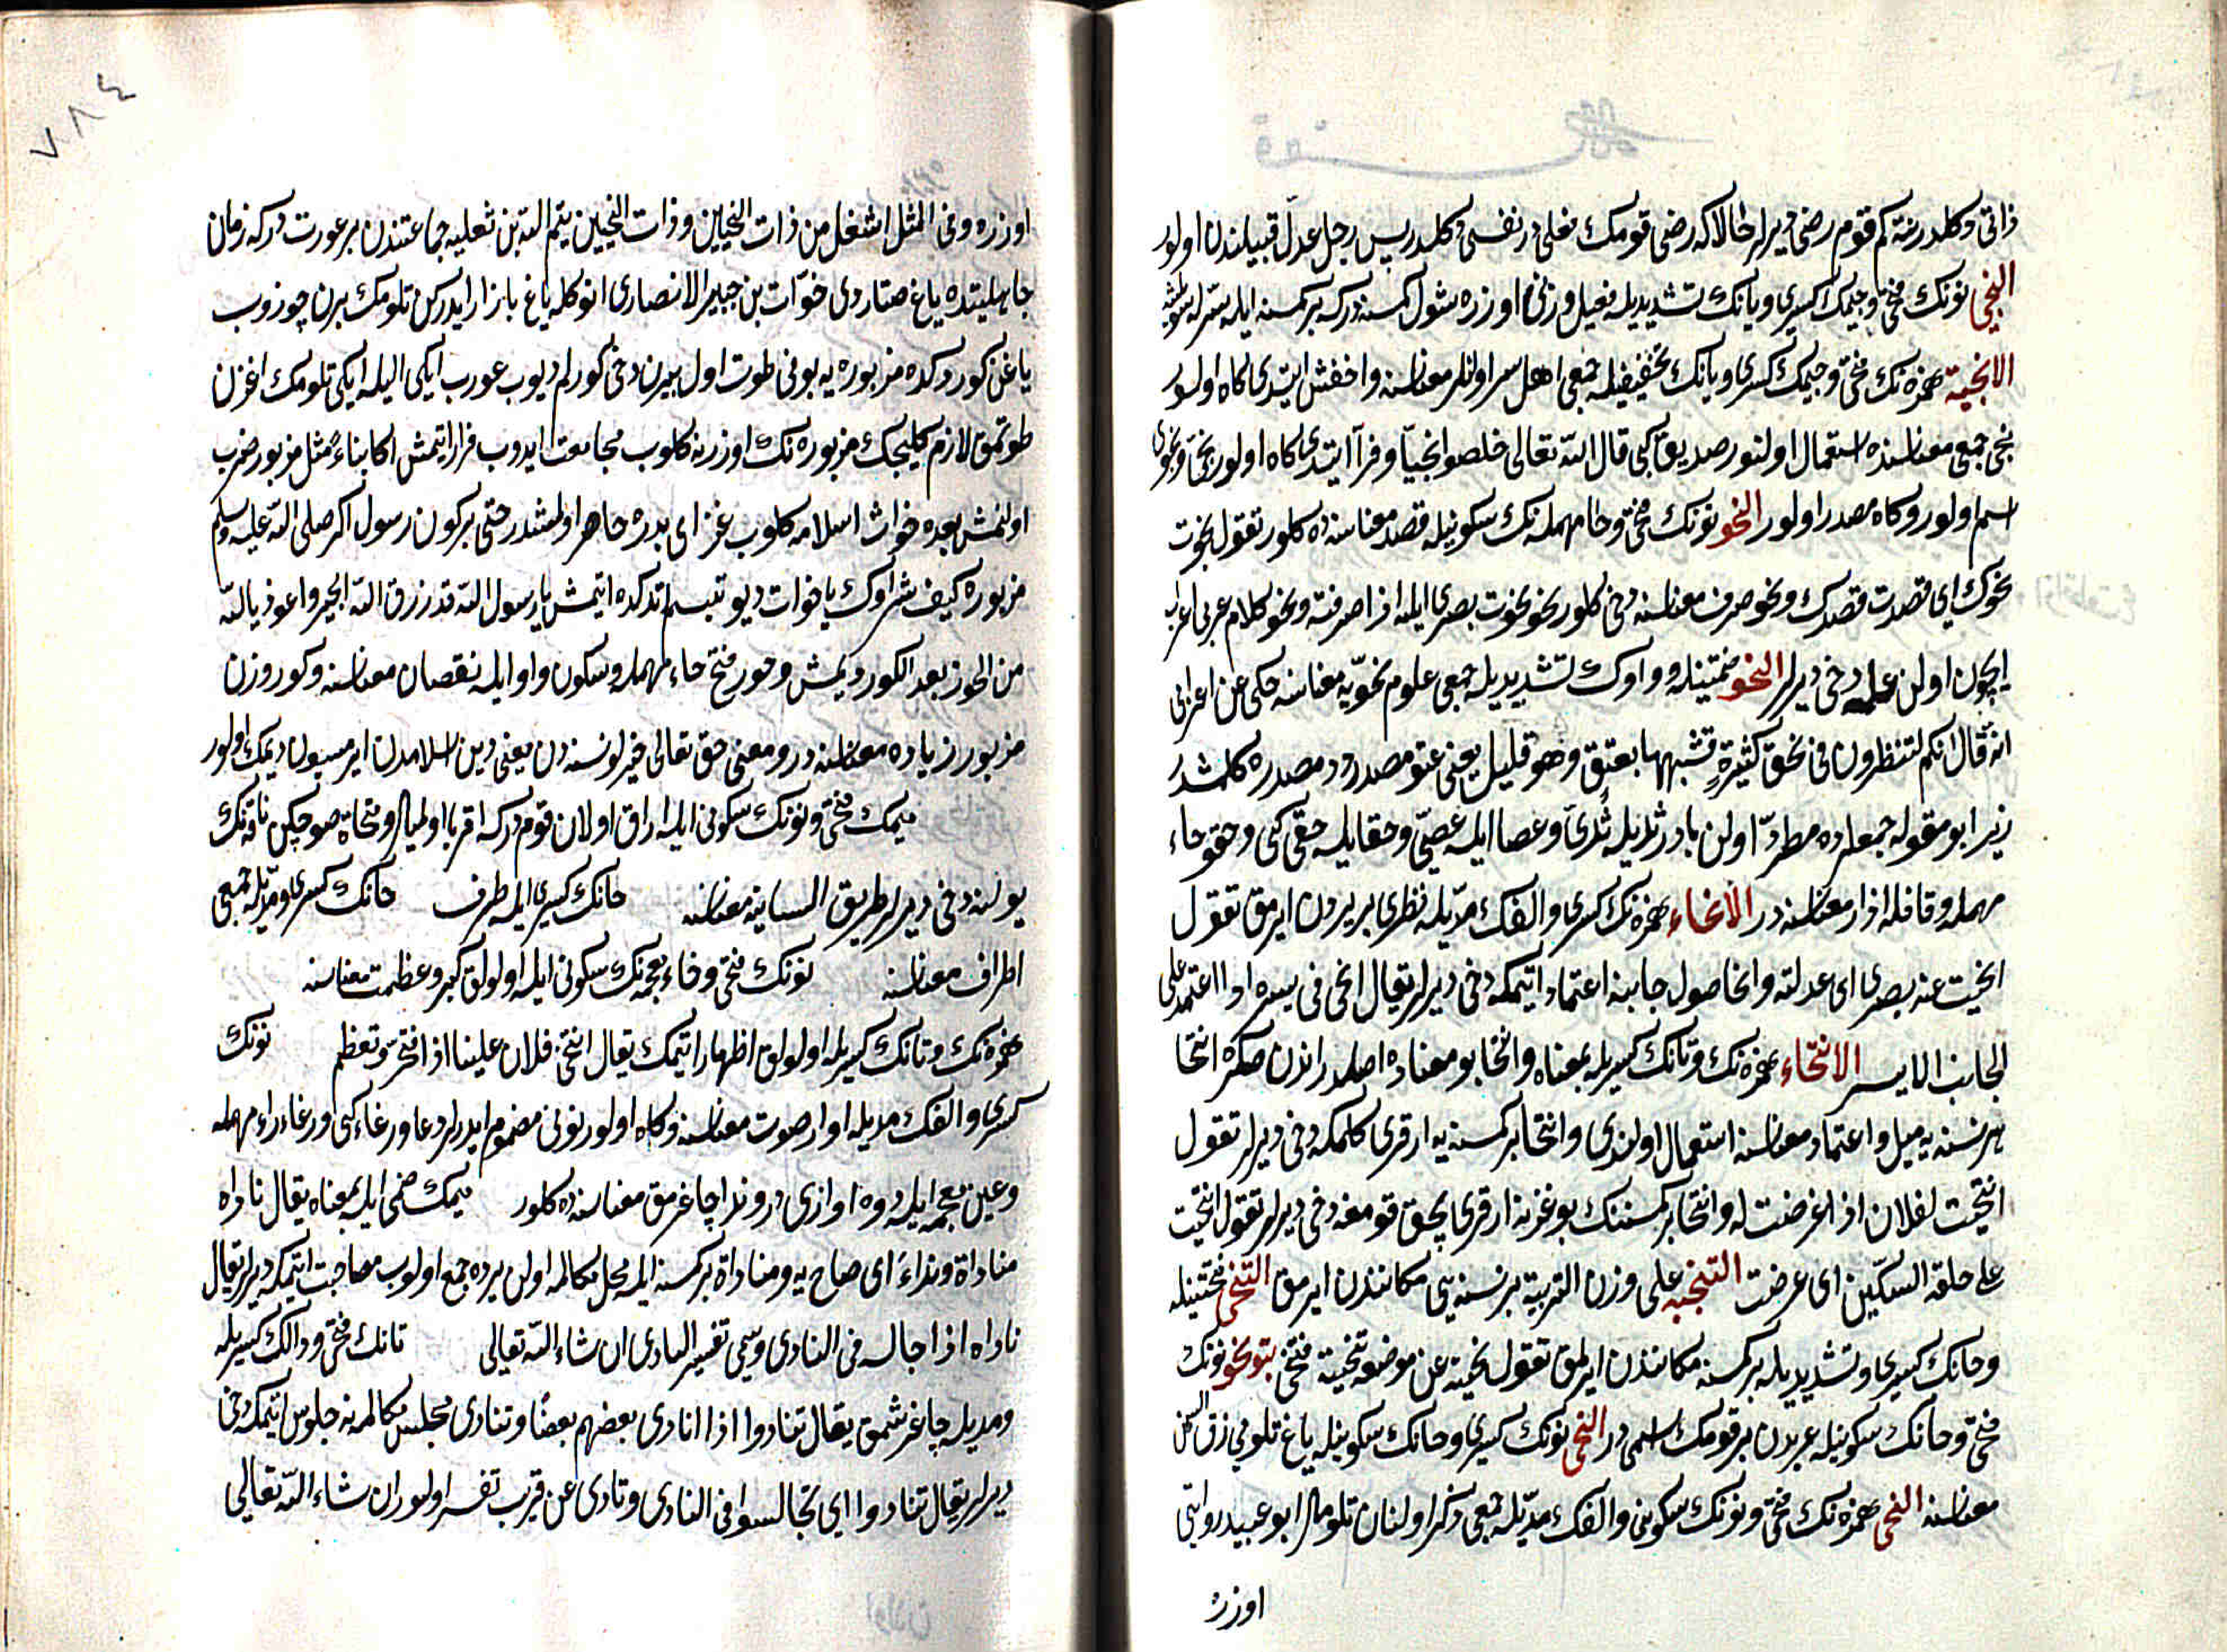 ذاتی دکلدر نته کم قوم رضی دیرلر حالا که رضی قومک فعلی در نفسی دکلدر پس رجل عدل قبیلندن اولور
النجی نونک فتحی و جیمک کسری و یانک تشدیدیله فعیل وزنی اوزره شول کمسه درکه بر کمسه ایله سر لشه
الانجیة همزه نک فتحی و جیمک کسری و یانک تخفیفیله جمعی اهل سر اولنلر معناسنه و اخفش ایتدی کاه اولور
نجی جمعی معناسنده استعمال اولنور صدیق کبی قال الله تعالی خلصوا نجیا و فرا ایتدی کاه اولور نجی و نجوی
اسم اولور و کاه مصدر اولور النحو نونک فتحی و حا مهمله نک سکونیله قصد معناسنده کلور تقول نحوت
نحوک ای قصدت قصدک و نحو صرف معناسنه دخی کلور نحو نحوت بصری الیه اذا صرفته و نحو کلام عربی اعراب
ایچون اولن علمه دخی دیرلر النحو ضمتینله و واوک تشدیدیله جمعی علوم نحویه معناسنه حکی عن اعرابی
انه قال انکم لتنظرون فی نحو کثیرة فشبهها بعتو و هو قلیل یعنی عتو مصدردر مصدرده کلمشدر
زیرا بو مقوله جمعلرده مطرد اولن یادر ثدی ایله ثدی و عصا ایله عصی و حقو ایله حقی کبی و حقو حاء
مهمله و قافله ازار معناسنه در الانحاء همزه نک کسری و الفک مدیله نظری بر یردن ایرمق تقول
انحیت عنه بصری ای عدلته و انحا صول جانبنه اعتماد ایتمکه دخی دیرلر یقال انحی فی سیره اذا اعتمد علی
الجانب الایسر الانتحاء همزه نک و تانک کسریله بمعناه و انتحا بو معناده اصلدر اندن صکره انتحا
هر نسنه یه میل و اعتماد معناسنه استعمال اولندی و انتحا بر کمسنه یه ارقری کلمکه دخی دیرلر تقول
انتحیت لفلان اذا عرضت له و انتحا بر کمسنه نک بوغزنه ارقری بچق قومغه دخی دیرلر تقول انتحیت
علی حلقه السکین ای عرضت التنحیه علی وزن التربیة بر نسنه یی مکانندن ایرمق التنحی فتحتینله
و حانک کسری و تشدیدیله بر کمسنه مکانندن ایرلمق تقول نحیته عن موضعه فتنحی بنو نحو نونک
فتحی و حانک سکونیله عربدن بر قومک اسمی در النحی نونک کسری و حانک سکونیله یاغ تلومی زق السمن
معناسنه النحی همزه نک فتحی و نونک سکونی و الفک مدیله جمعی ذکر اولنان تلوملر ابو عبید روایتی
اوزره
اوزره و فی المثل اشغل من ذات النحیین و ذات النحیین تیم الله بن ثعلبه جماعتندن بر عورت درکه زمان
جاهلیتده یاغ صتاردی خوات بن جبیر الانصاری انوکله یاغ بازار ایدرکن تلومک برن چوزوب
یاغن کوردکده مزبوره یه بونی طوت اول برین دخی کورلم دیوب عورب ایکی الیله ایکی تلومک اغزن
طوتمق لازم کلیجک مزبوره نک اوزرنه کلوب مجامعت ایدوب فرار ایتمش اکا بناء مثل مزبور ضرب
اولنمش بعده خوات اسلامه کلوب غزای بدره حاضر اولمشدر حتی بر کون رسول اکرم صلی الله علیه وسلم
مزبوره کیف شراوک یا خوات دیو تبسم ایتدکده ایتمش یا رسول الله قد رزق الله الخیر و اعوذ بالله
من الحور بعد الکور دیمش و حور فتح حاء مهمله و سکون واو ایله نقصان معناسنه و کور وزن
مزبور زیاده معناسنه در و معنی حق تعالی خیرلو نسنه دن یعنی دین اسلامدن ایرمسون دیمک اولور
میمک فتحی و نونک سکونی ایله اراق اولان قوم درکه اقربا اولمیالر و منحاة صو چکن ناقه نک
یولنه دخی دیرلر طریق السانیه معناسنه حانک کسری ایله طرف حانک کسری و مدیله جمعی
اطراف معناسنه نونک فتحی و خاء معجمه نک سکونی ایله اولولق کبر و عظمت معناسنه
همزه نک و تانک کسریله اولولق اظهار ایتمک یقال انتخی فلان علینا اذا افتخر و تعظم نونک
کسری و الفک مدیله اواز صوت معناسنه و کاه اولور نونی مضموم ایدرلر دعا و رغاء کبی و رغاء راء مهمله
و غین معجمه ایله دوه اوازی در و ندا چاغرمق معناسنده کلور میمک ضمی ایله بمعناه یقال ناداه
مناداة و نداء ای صاح به و مناداة بر کمسنه ایله محل مکالمه اولن یرده جمع اولوب مصاحبت ایتمکه دیرلر یقال
ناداه اذا جالسه فی النادی و سیجی تفسیر النادی ان شاء الله تعالی تانک فتحی و دالک کسریله
و مدیله چاغرشمق یقال تنادوا اذا نادی بعضهم بعضا و تنادی مجلس مکالمه ده جلوس ایتمکه دخی
دیرلر یقال تنادوا ای تجالسوا فی النادی و نادی عن قریب تفسیر اولور ان شاء الله تعالی
٧٨٤